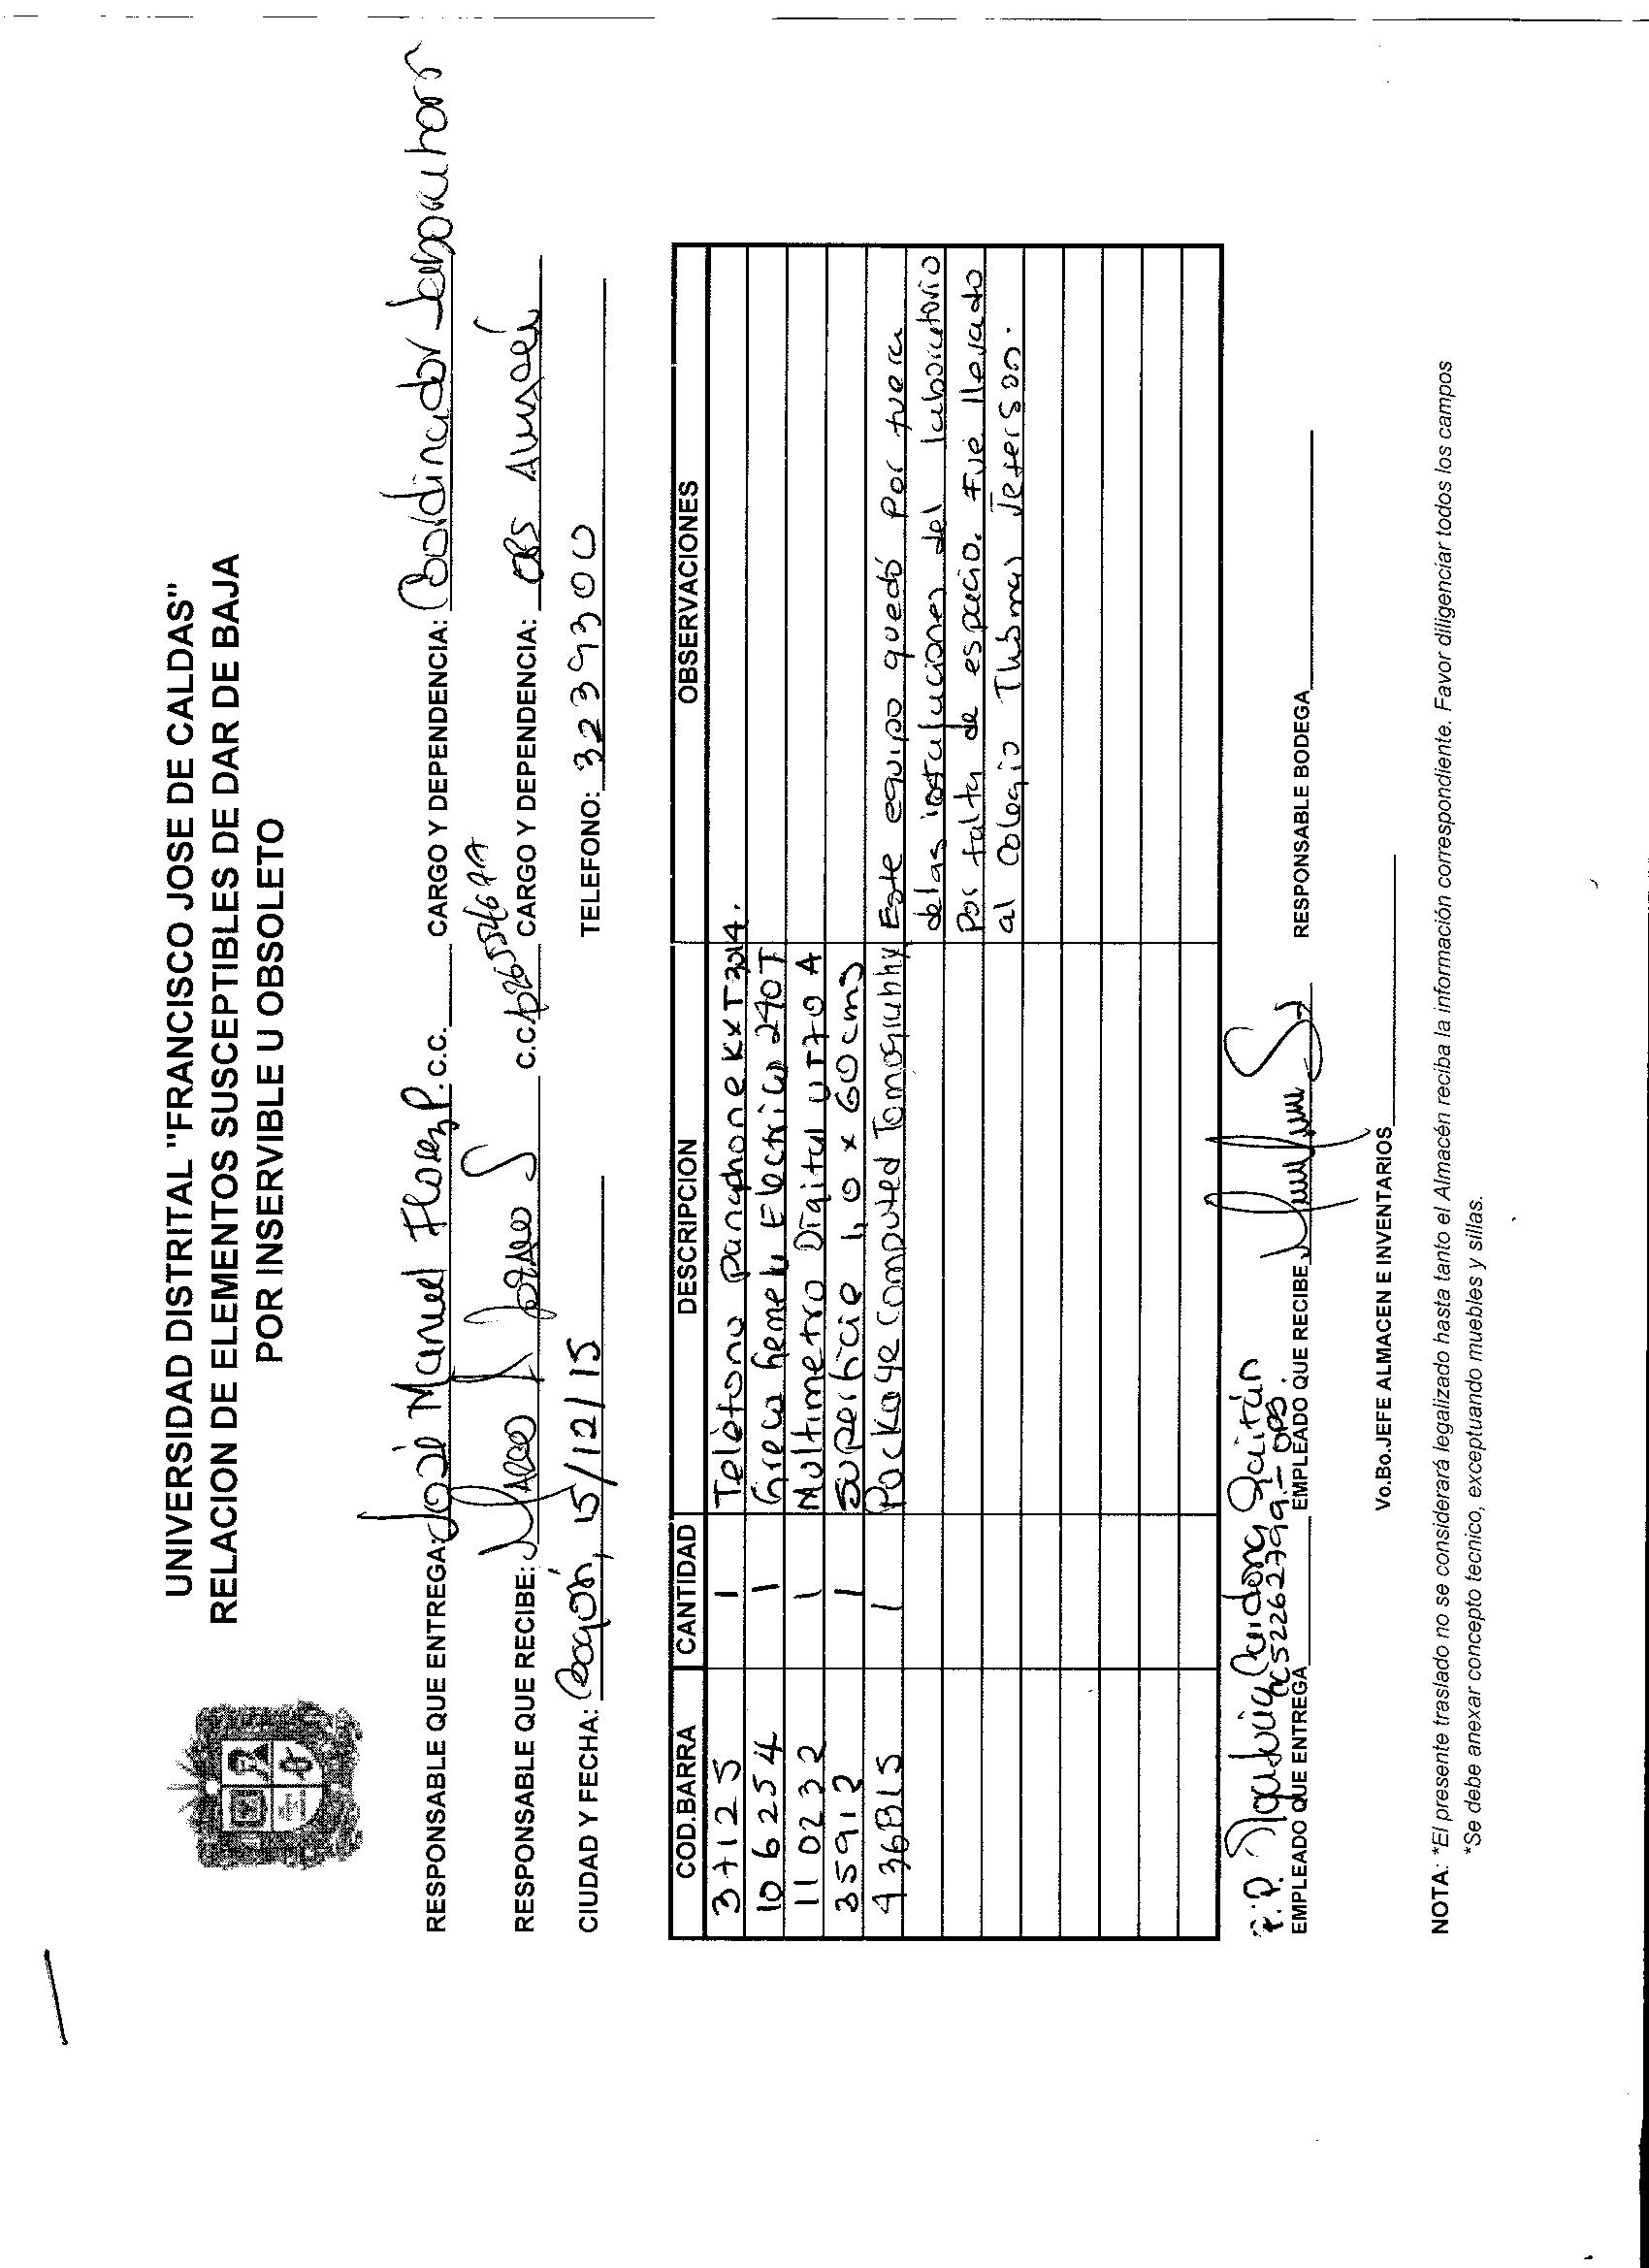 UNIVERSIDAD DISTRITAL "FRANCISCO JOSE DE CALDAS"
RELACION DE ELEMENTOS SUSCEPTIBLES DE DAR DE BAJA
POR INSERVIBLE U OBSOLETO
RESPONSABLE QUE ENTREGA: José Manuel Florez P. C.C. CARGO Y DEPENDENCIA: Coordinador
RESPONSABLE QUE RECIBE: C.C. CARGO Y DEPENDENCIA: OPS Almacén
CIUDAD Y FECHA: 15/12/15 TELEFONO: 3239300
COD.BARRA CANTIDAD DESCRIPCION OBSERVACIONES
37125 1 Teléfono panaphone KXT3014.
106254 1 Greca hemelu Electrica 240T
110232 1 Multimetro Digital UT70A
35912 1 Superficie 1,0 x 60cms
436B15 1 Package Computed Tomogruhy Este equipo quedó por fuera
de las instalaciones del laboratorio
por falta de espacio. Fué llevado
al Colegio Thomas Jeferson.
P.P. Gaitán
CC 52262799 - OPS.
EMPLEADO QUE ENTREGA EMPLEADO QUE RECIBE RESPONSABLE BODEGA
Vo.Bo.JEFE ALMACEN E INVENTARIOS
NOTA: *El presente traslado no se considerará legalizado hasta tanto el Almacén reciba la información correspondiente. Favor diligenciar todos los campos
*Se debe anexar concepto tecnico, exceptuando muebles y sillas.